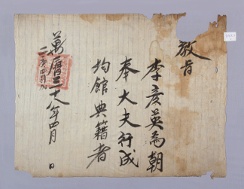 敎旨
李彦英爲朝
奉大夫行成
均館典籍者
萬曆三十八年四月 日